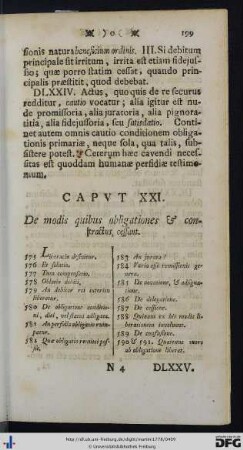 )o( 199
sionis natura beneficium ordinis. III. Si debitum
principale sit irritum, irrita est etiam fidejus-
sio; quæ porro statim cessat, quando prin-
cipalis præstitit, quod debebat.
DLXXIV. Actus, quo quis de re securus
redditur, cautio vocatur; alia igitur est nu-
de promissoria, alia juratoria, alia pignora-
titia, alia fidejussoria, seu satisdatio. Conti-
net autem omnis cautio conditionem obliga-
tionis primariæ, neque sola, qua talis, sub-
sistere potest. Ceterum hæc cavendi neces-
sitas est quoddam humanæ perfidiæ testimo-
nium.
CAPVT XXI.
De modis quibus obligationes & con-
tractus, cessant.
575 Liberatio definitur.
576 Et solutio.
577 Tum compensatio.
578 Oblatio debiti,
579 An debitor rei
liberetur.
580 De obligatione conditio-
581 An perfidia obligatio rum-
patur.
582 Quæ obligatio remitti pos-
sit.
583 An jurata?
584 Varia est remissionis ge-
nera.
585 De novatione, &
586 De delegatione.
587 De cessione.
588 modis li-
589 De confusione.
590 & 591. Quatenus mors
ab obligatione liberat.
N 4 DLXXV.